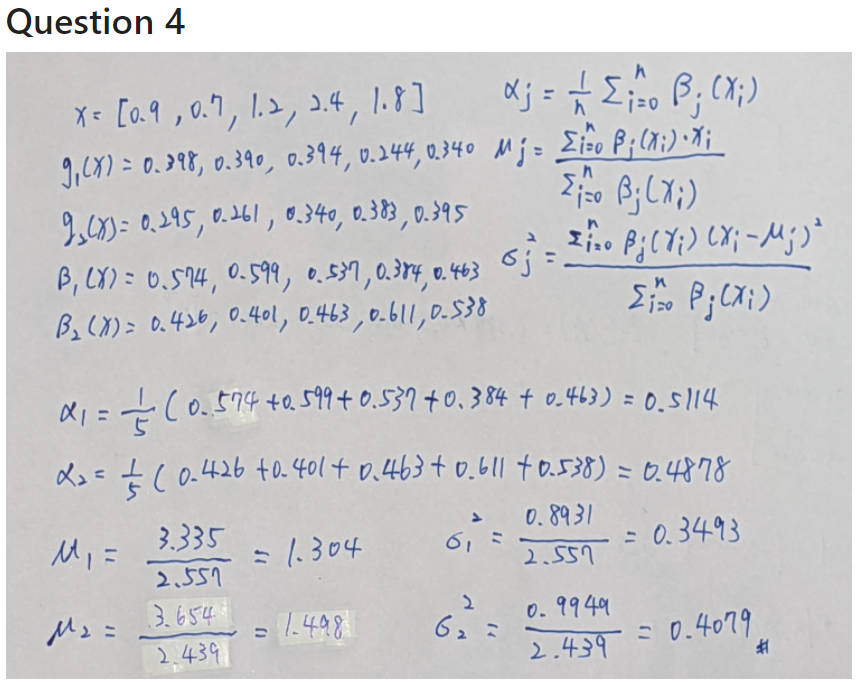 Question 4
x = [0.9, 0.7, 1.2, 2.4, 1.8]
g₁(x) = 0.398, 0.390, 0.394, 0.244, 0.340
g₂(x) = 0.295, 0.261, 0.340, 0.383, 0.395
β₁(x) = 0.574, 0.599, 0.537, 0.384, 0.463
β₂(x) = 0.426, 0.401, 0.463, 0.611, 0.538
αj = 1/n Σⁿᵢ₌₀ βj(xᵢ)
μj = Σⁿᵢ₌₀ βj(xᵢ)·xᵢ / Σⁿᵢ₌₀ βj(xᵢ)
σj² = Σⁿᵢ₌₀ βj(xᵢ)(xᵢ-μj)² / Σⁿᵢ₌₀ βj(xᵢ)
α₁ = 1/5 (0.574 + 0.599 + 0.537 + 0.384 + 0.463) = 0.5114
α₂ = 1/5 (0.426 + 0.401 + 0.463 + 0.611 + 0.538) = 0.4878
μ₁ = 3.335 / 2.557 = 1.304
σ₁² = 0.8931 / 2.557 = 0.3493
μ₂ = 3.654 / 2.439 = 1.498
σ₂² = 0.9949 / 2.439 = 0.4079 #